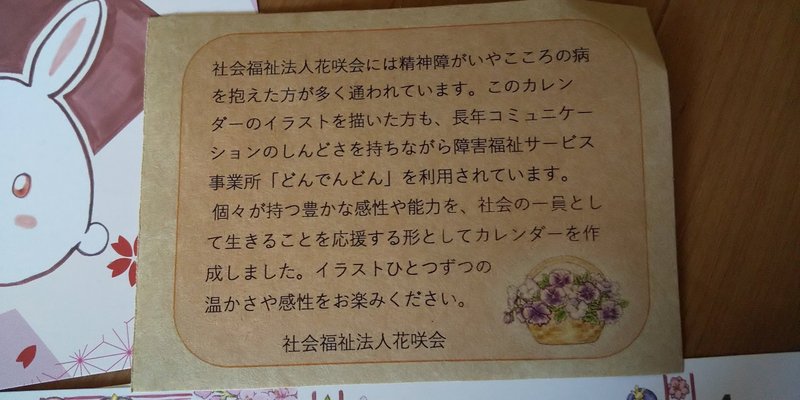 社会福祉法人花咲会には精神障がいやこころの病
を抱えた方が多く通われています。このカレン
ダーのイラストを描いた方も、長年コミュニケー
ションのしんどさを持ちながら障害福祉サービス
事業所「どんでんどん」を利用されています。
個々が持つ豊かな感性や能力を、社会の一員とし
て生きることを応援する形としてカレンダーを作
成しました。イラストひとつずつの
温かさや感性をお楽みください。
社会福祉法人花咲会